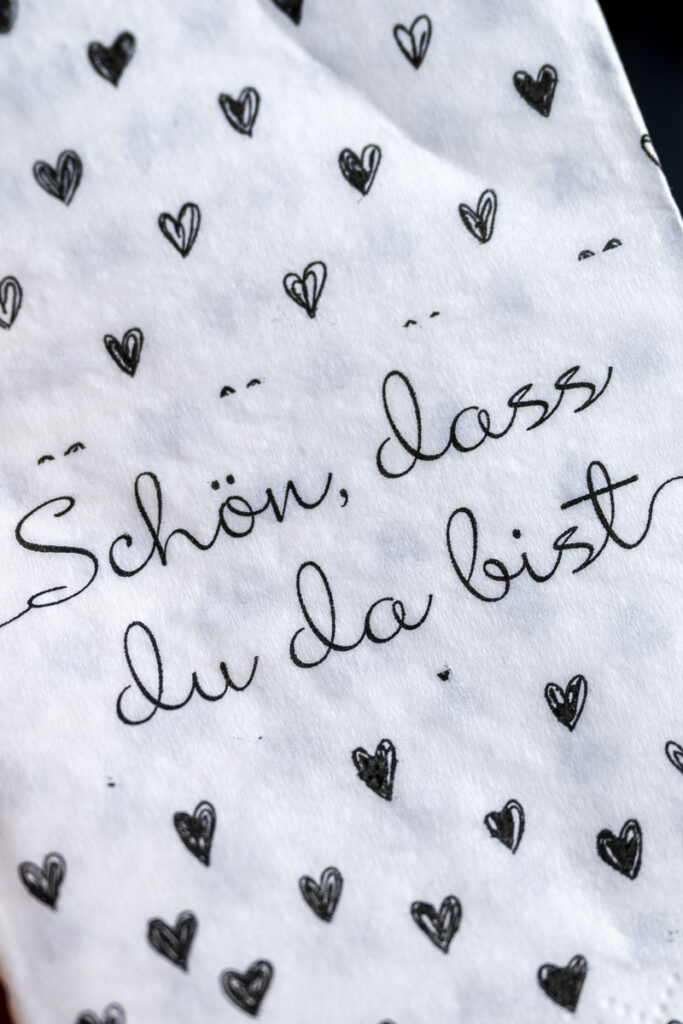 Schön, dass
du da bist